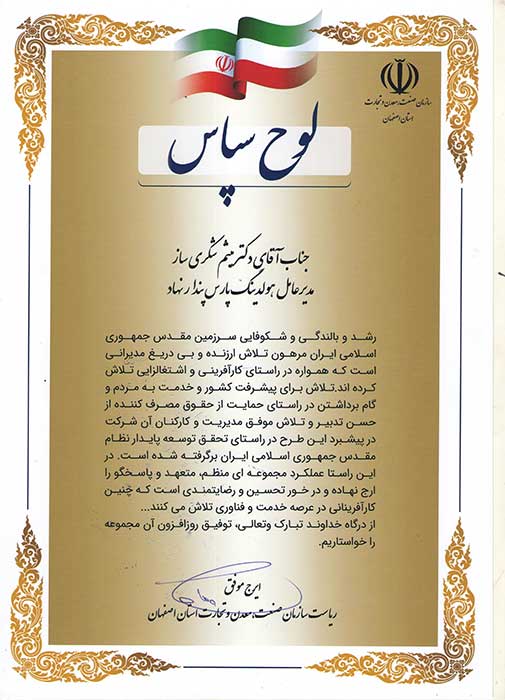 سازمان صنعت، معدن و تجارت
استان اصفهان
لوح سپاس
جناب آقای دکتر میثم شکری ساز
مدیرعامل هولدینگ پارس پندار نهاد
رشد و بالندگی و شکوفایی سرزمین مقدس جمهوری
اسلامی ایران مرهون تلاش ارزنده و بی دریغ مدیرانی
است که همواره در راستای کارآفرینی و اشتغالزایی تلاش
کرده اند.تلاش برای پیشرفت کشور و خدمت به مردم و
گام برداشتن در راستای حمایت از حقوق مصرف کننده از
حسن تدبیر و تلاش موفق مدیریت و کارکنان آن شرکت
در پیشبرد این طرح در راستای تحقق توسعه پایدار نظام
مقدس جمهوری اسلامی ایران برگرفته شده است. در
این راستا عملکرد مجموعه ای منظم، متعهد و پاسخگو را
ارج نهاده و در خور تحسین و رضایتمندی است که چنین
کارآفرینانی در عرصه خدمت و فناوری تلاش می کنند...
از درگاه خداوند تبارک وتعالی، توفیق روزافزون آن مجموعه
را خواستاریم.
ایرج موفق
ریاست سازمان صنعت، معدن و تجارت استان اصفهان